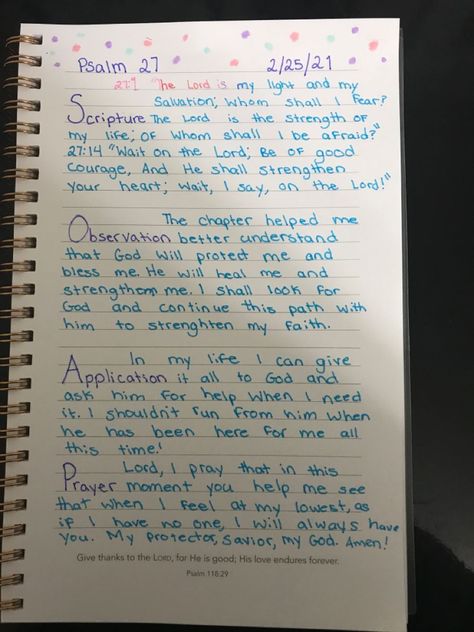 Psalm 27 2/25/21
27:1 "The Lord is my light and my
Salvation; Whom shall I fear?
Scripture The Lord is the strength of
my life; Of whom shall I be afraid?"
27:14 "Wait on the Lord; Be of good
courage, And He shall strengthen
your heart; Wait, I say, on the Lord!"
The chapter helped me
Observation better understand
that God will protect me and
bless me. He will heal me and
strengthen me. I shall look for
God and continue this path with
him to strenghten my faith.
In my life I can give
Application it all to God and
ask him for help when I need
it. I shouldn't run from him when
he has been here for me all
this time!
Lord, I pray that in this
Prayer moment you help me see
that when I feel at my lowest, as
if I have no one, I will always have
you. My protector, Savior, my God. Amen!
Give thanks to the LORD, for He is good; His love endures forever.
Psalm 118:29